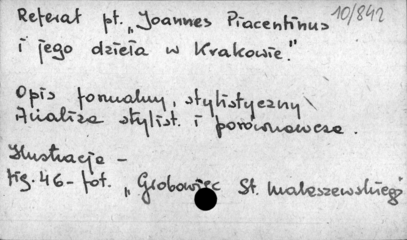 10/842
Referat pt. „Joannes Piacentinus
i jego dzieła w Krakowie."
Opis formalny, stylistyczny
Analiza stylist. i porównawcza.
Ilustracje -
fig. 46 - fot. „Grobowiec St. Małaszewskiego"